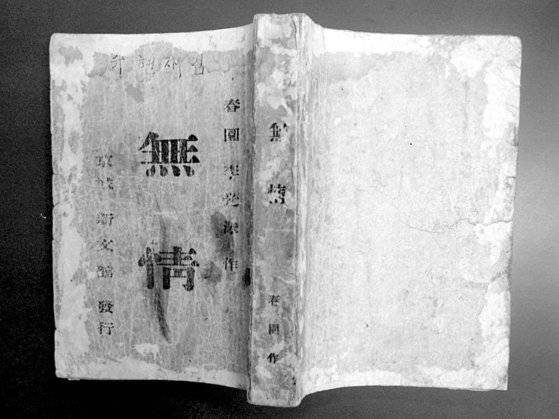 春園 李光洙 作
無情
京城 新文館 發行
無情
春園作